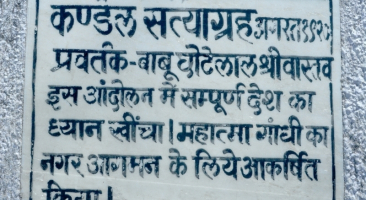 कण्डेल सत्याग्रह अगस्त १९२०
प्रवर्तक-बाबू छोटेलाल श्रीवास्तव
इस आंदोलन में सम्पूर्ण देश का
ध्यान खींचा। महात्मा गांधी का
नगर आगमन के लिये आकर्षित
किया।